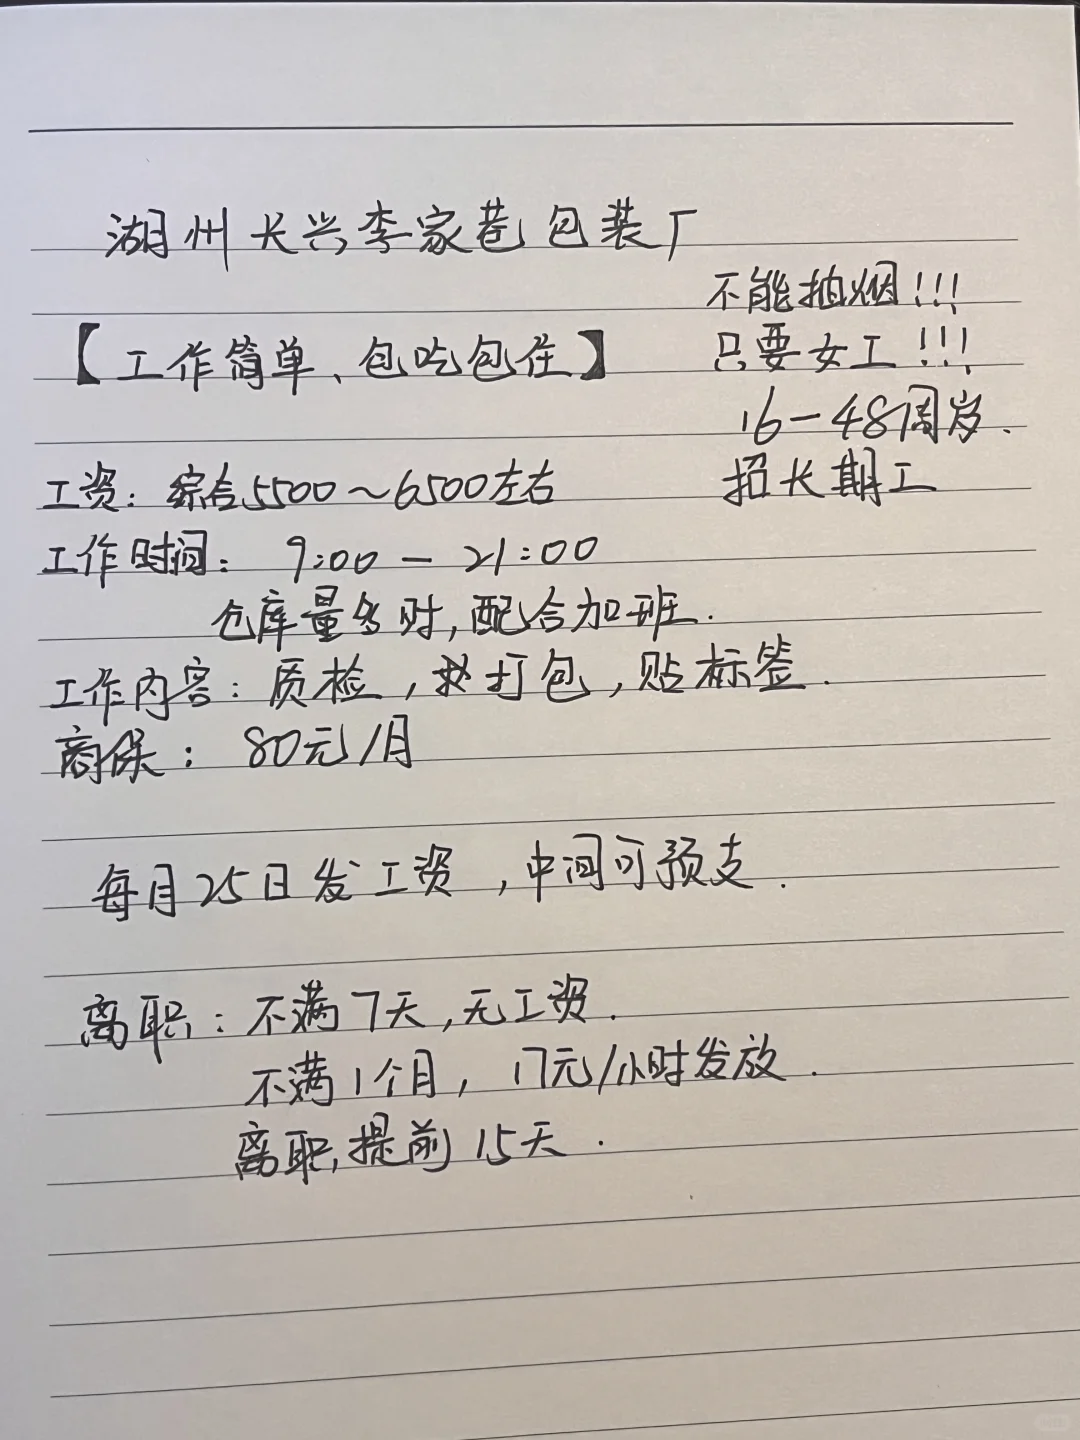 湖州长兴李家巷包装厂
不能抽烟!!!
【工作简单、包吃包住】
只要女工!!!
16-48周岁.
工资: 综合5500~6500左右
招长期工
工作时间: 9:00 - 21:00
仓库量多时,配合加班.
工作内容: 质检,打包,贴标签.
商保: 80元/月
每月25日发工资,中间可预支.
离职: 不满7天,无工资.
不满1个月, 17元/小时发放.
离职,提前15天.